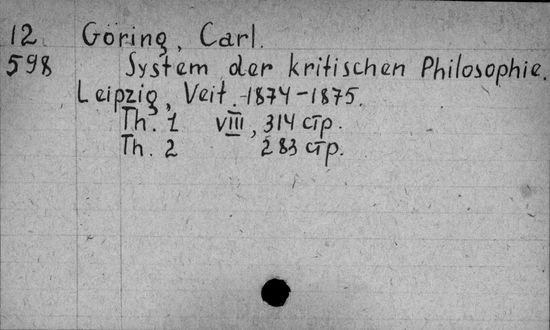 12 Göring, Carl.
598 System der kritischen Philosophie.
Leipzig, Veit. 1874-1875.
Th. 1 VIII, 314 стр.
Th. 2 283 стр.